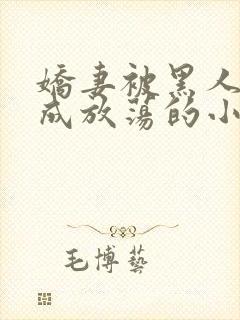 嬌妻被黑人
成放蕩的小
毛博藝